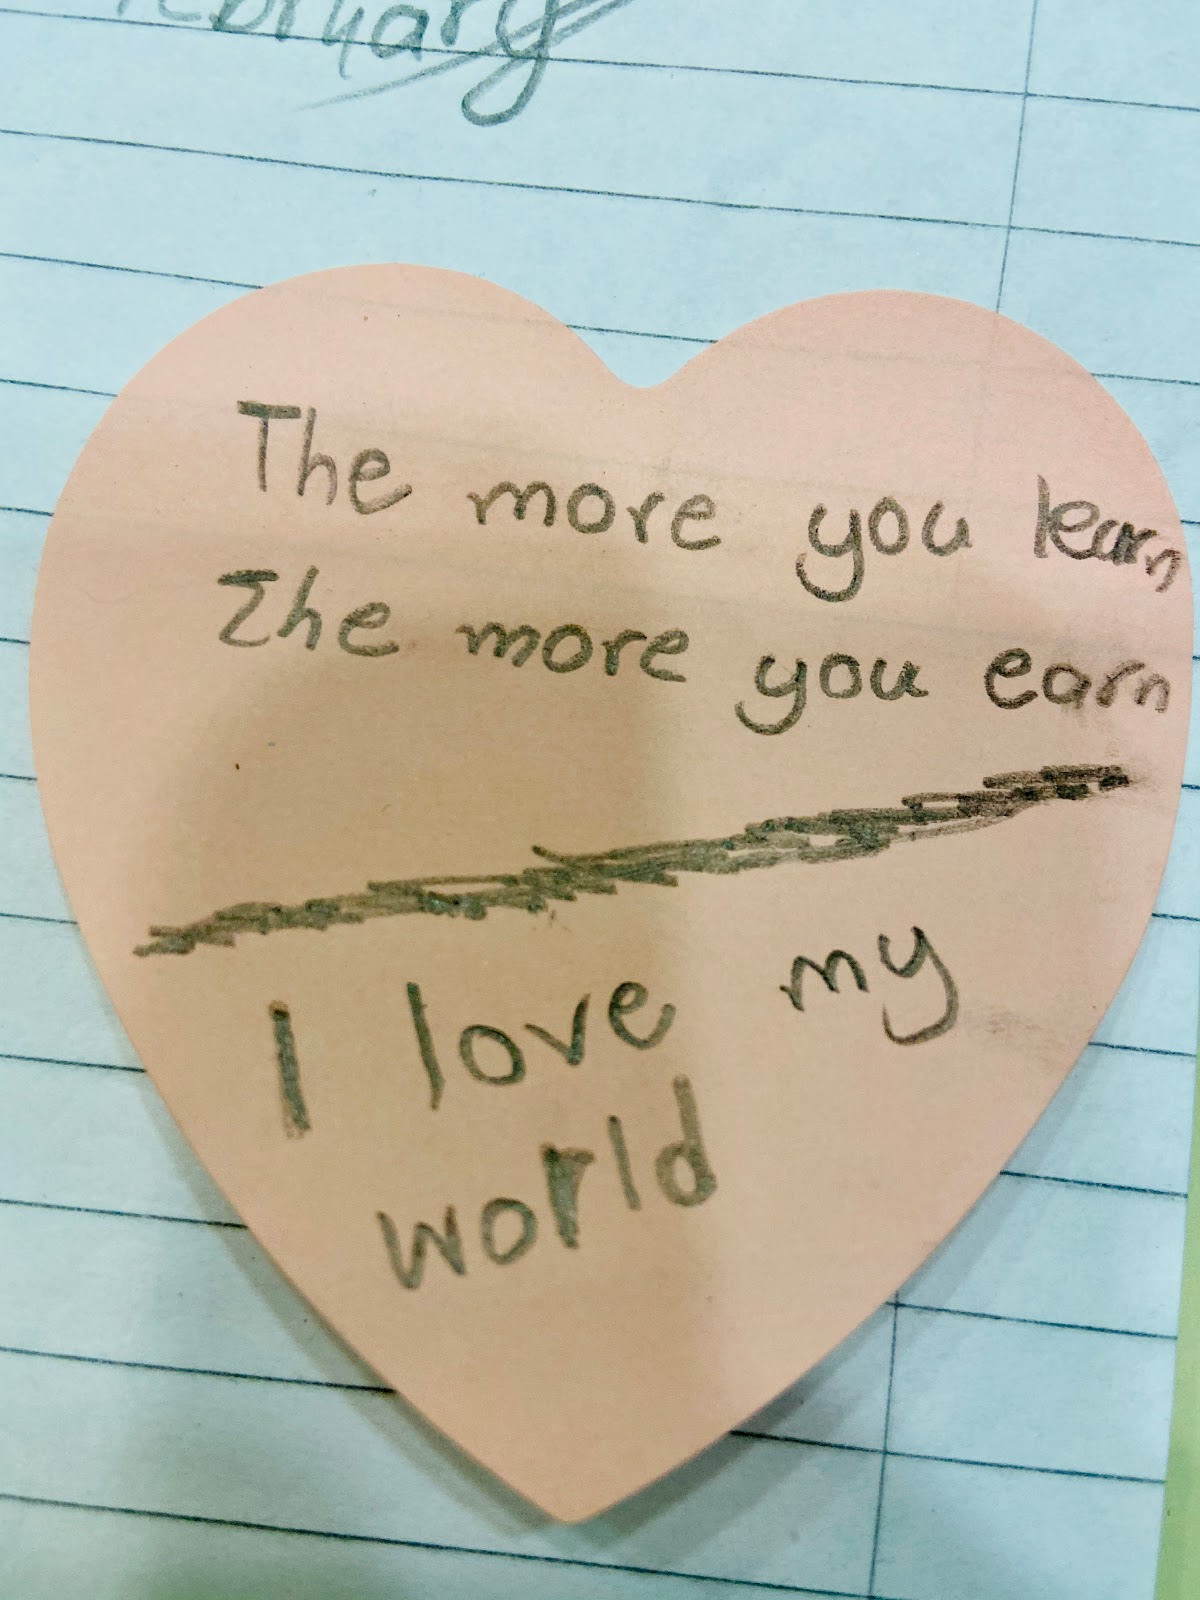 The more you learn
The more you earn
I love my
world